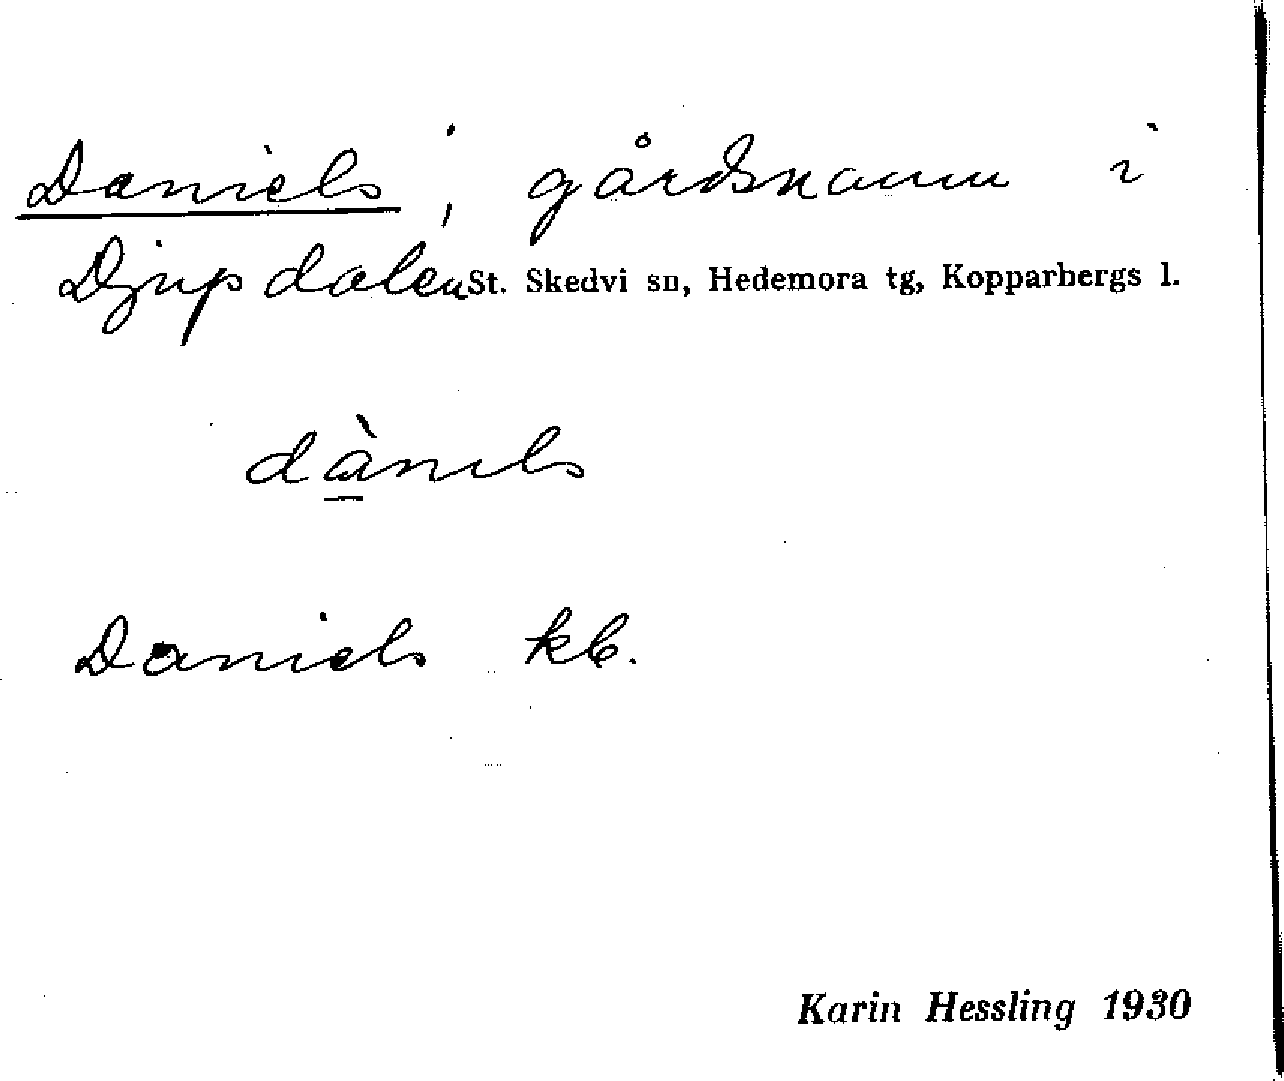 Daniels, gårdsnamn i
Djupdalen St. Skedvi sn, Hedemora tg, Kopparbergs l.
dà̱nıls
Daniels kb.
Karin Hessling 1930